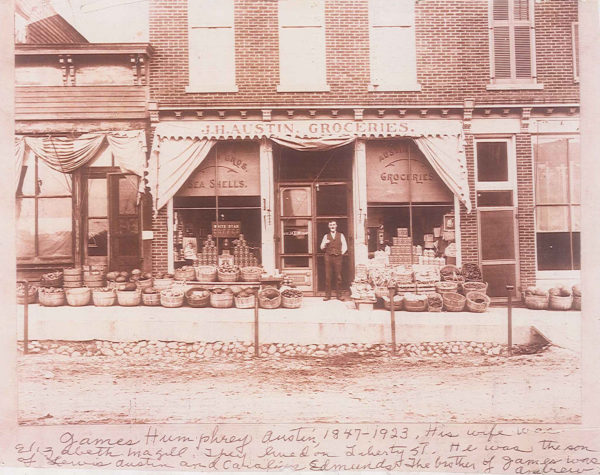 J.H. AUSTIN, GROCERIES.
BROS.
SEA SHELLS.
AUSTIN
GROCERIES.
WHITE STAR
COFFEE
James Humphrey Austin, 1847-1923, His wife was
Elizabeth Magill. They lived on Liberty St. He was the son
of Lewis Austin and Caroline Edmunds. The brother of James was
Andrew